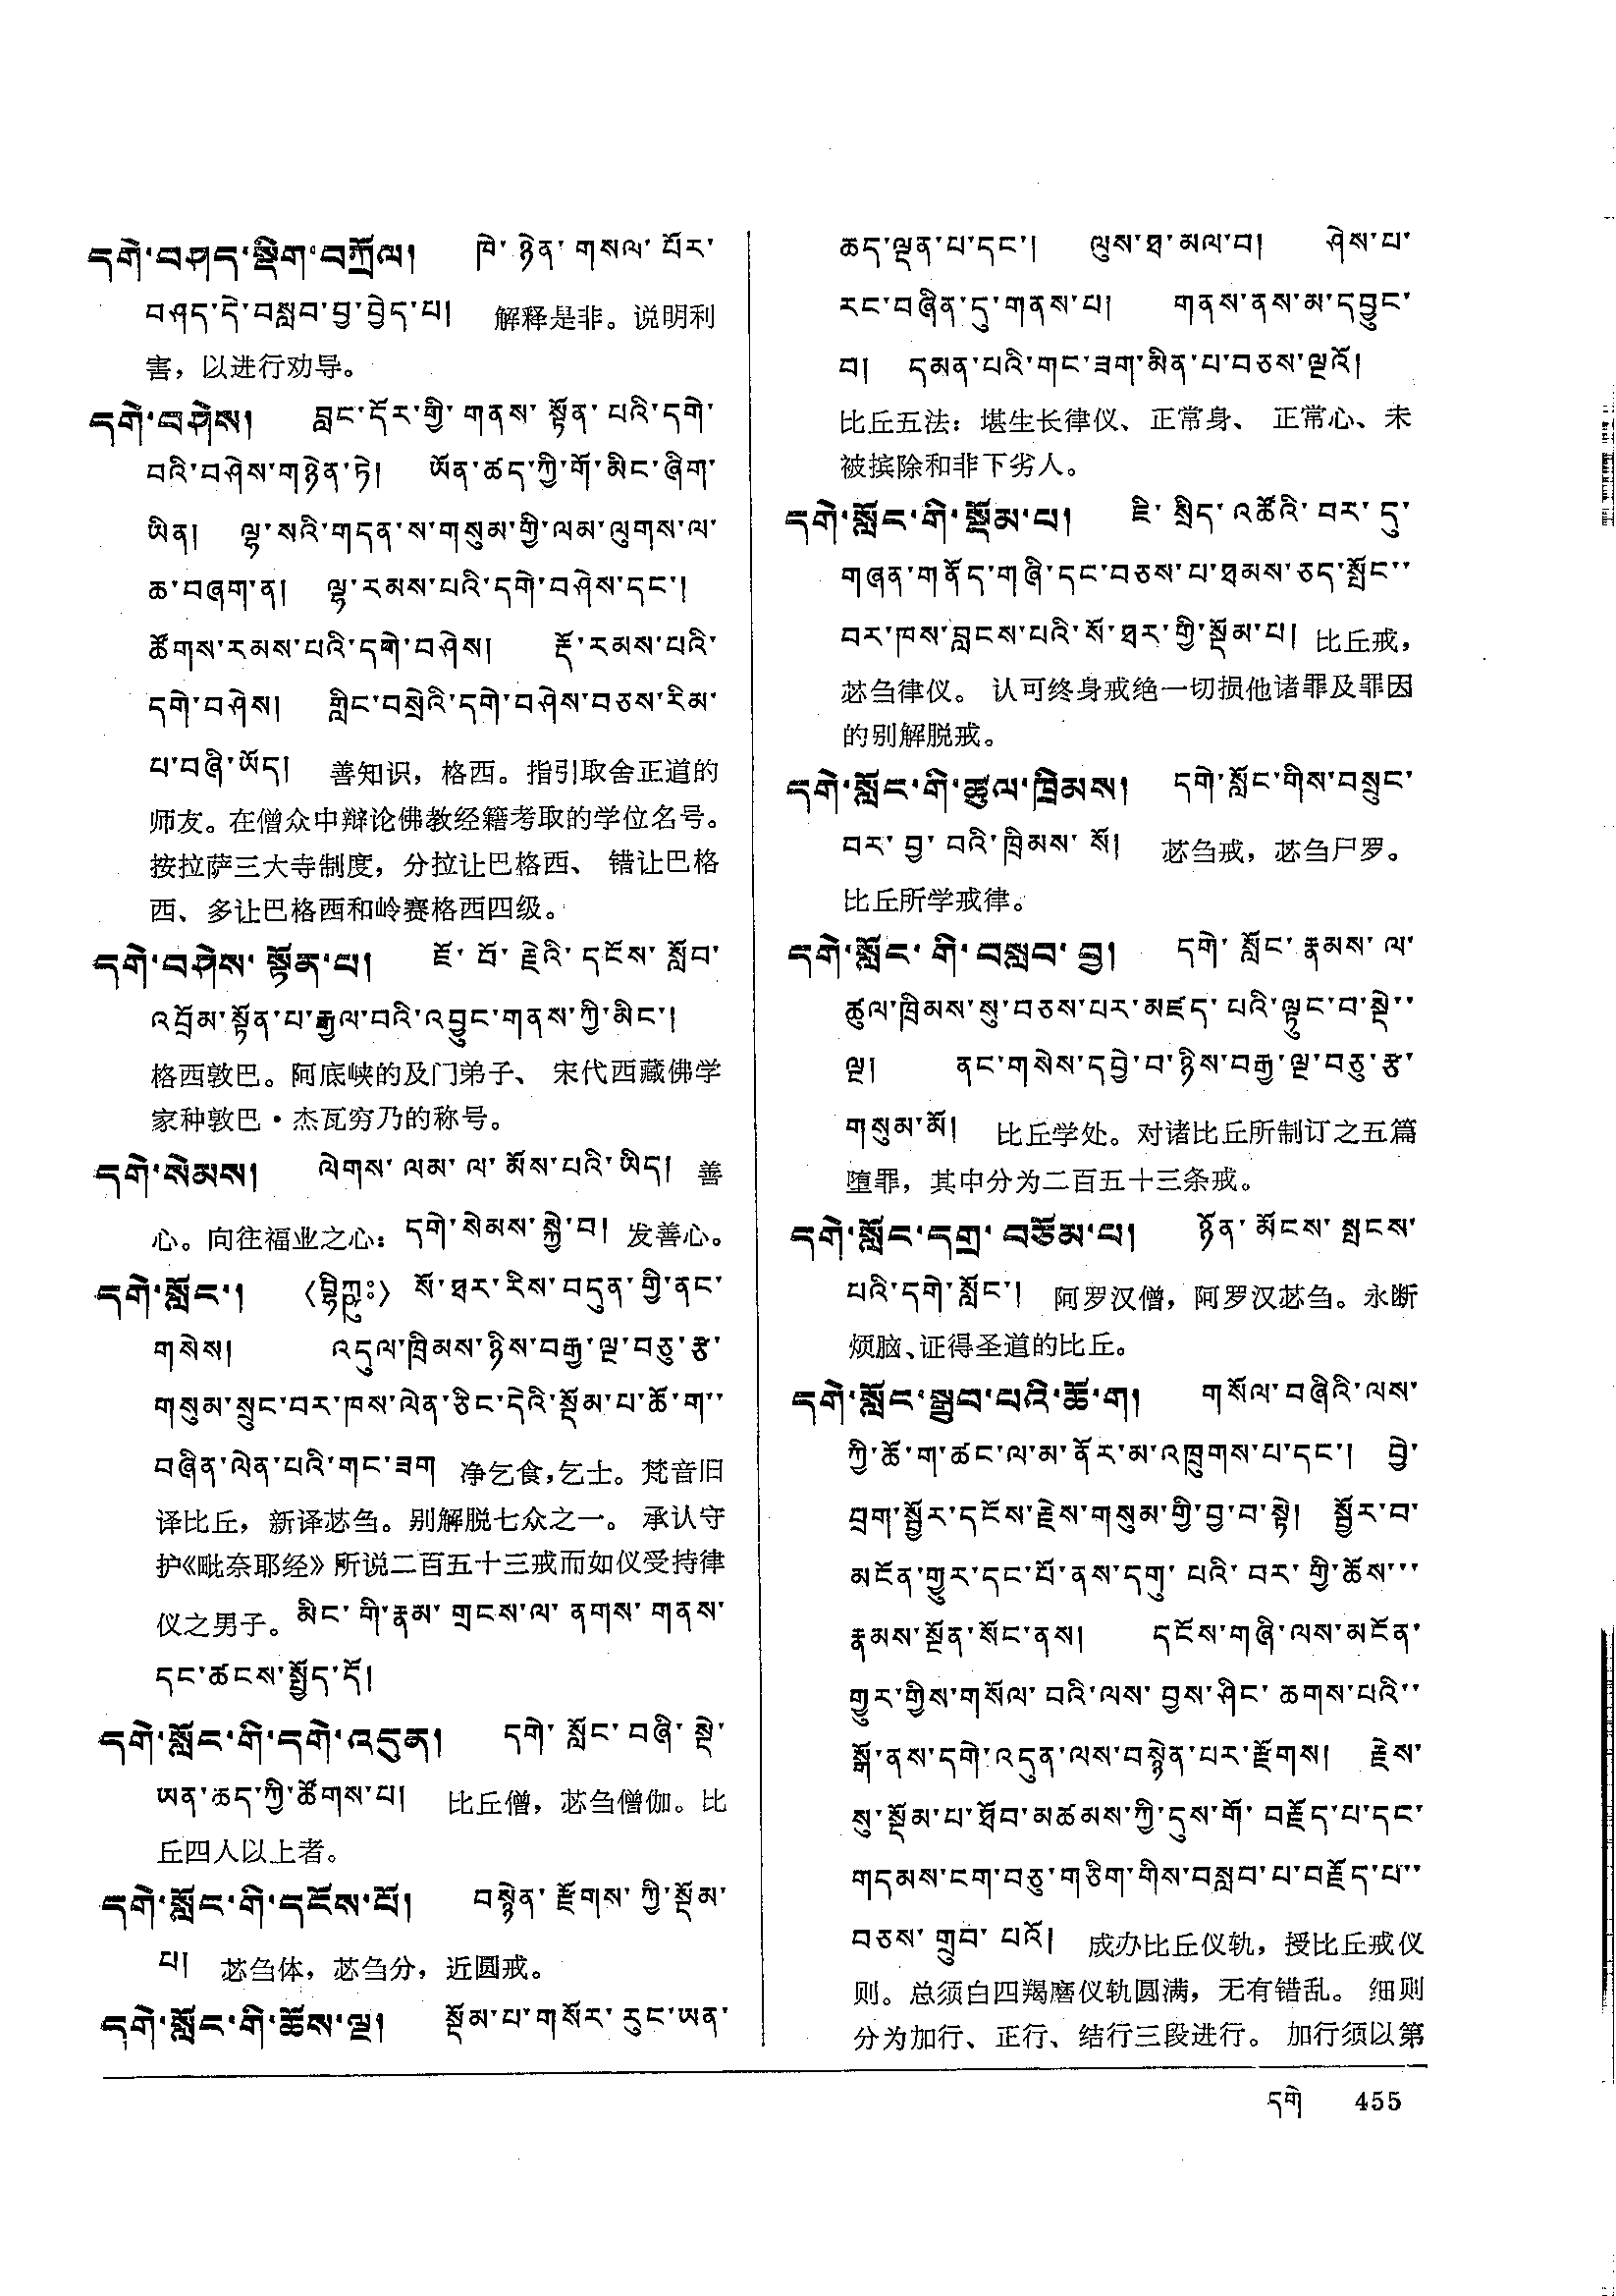 དགེ་བཤད་སྡིག་བཀྲོལ། ཁེ་ཉེན་གསལ་པོར་
བཤད་དེ་བསླབ་བྱ་བྱེད་པ། 解释是非。说明利
害，以进行劝导。
དགེ་བཤེས། བླང་དོར་གྱི་གནས་སྟོན་པའི་དགེ་
བའི་བཤེས་གཉེན་ཏེ། ཡོན་ཚད་ཀྱི་གོ་མིང་ཞིག་
ཡིན། ལྷ་སའི་གདན་ས་གསུམ་གྱི་ལམ་ལུགས་ལ་
ཆ་བཞག་ན། ལྷ་རམས་པའི་དགེ་བཤེས་དང་།
ཚོགས་རམས་པའི་དགེ་བཤེས། རྡོ་རམས་པའི་
དགེ་བཤེས། གླིང་བསྲེའི་དགེ་བཤེས་བཅས་རིམ་
པ་བཞི་ཡོད། 善知识，格西。指引取舍正道的
师友。在僧众中辩论佛教经籍考取的学位名号。
按拉萨三大寺制度，分拉让巴格西、错让巴格
西、多让巴格西和岭赛格西四级。
དགེ་བཤེས་སྟོན་པ། ཇོ་བོ་རྗེའི་དངོས་སློབ་
འབྲོམ་སྟོན་པ་རྒྱལ་བའི་འབྱུང་གནས་ཀྱི་མིང་།
格西敦巴。阿底峡的及门弟子、宋代西藏佛学
家种敦巴·杰瓦穷乃的称号。
དགེ་སེམས། ལེགས་ལམ་ལ་མོས་པའི་ཡིད། 善
心。向往福业之心：དགེ་སེམས་སྐྱེ་བ། 发善心。
དགེ་སློང་། 〈བྷིཀྵུཿ〉 སོ་ཐར་རིས་བདུན་གྱི་ནང་
གསེས། འདུལ་ཁྲིམས་ཉིས་བརྒྱ་ལྔ་བཅུ་རྩ་
གསུམ་སྲུང་བར་ཁས་ལེན་ཅིང་དེའི་སྡོམ་པ་ཆོ་ག་་
བཞིན་ལེན་པའི་གང་ཟག 净乞食，乞士。梵音旧
译比丘，新译苾刍。别解脱七众之一。承认守
护《毗奈耶经》所说二百五十三戒而如仪受持律
仪之男子。མིང་གི་རྣམ་གྲངས་ལ་ནགས་གནས་
དང་ཚངས་སྤྱོད་དོ།
དགེ་སློང་གི་དགེ་འདུན། དགེ་སློང་བཞི་སྡེ་
ཡན་ཆད་ཀྱི་ཚོགས་པ། 比丘僧，苾刍僧伽。比
丘四人以上者。
དགེ་སློང་གི་དངོས་པོ། བསྙེན་རྫོགས་ཀྱི་སྡོམ་
པ། 苾刍体，苾刍分，近圆戒。
དགེ་སློང་གི་ཆོས་ལྔ། སྡོམ་པ་གསོར་རུང་ཡན་
ཆད་ལྡན་པ་དང་། ལུས་ཐ་མལ་བ། ཤེས་པ་
རང་བཞིན་དུ་གནས་པ། གནས་ནས་མ་དབྱུང་
བ། དམན་པའི་གང་ཟག་མིན་པ་བཅས་ལྔའོ།
比丘五法：堪生长律仪、正常身、正常心、未
被摈除和非下劣人。
དགེ་སློང་གི་སྡོམ་པ། ཇི་སྲིད་འཚོའི་བར་དུ་
གཞན་གནོད་གཞི་དང་བཅས་པ་ཐམས་ཅད་སྤོང་་
བར་ཁས་བླངས་པའི་སོ་ཐར་གྱི་སྡོམ་པ། 比丘戒，
苾刍律仪。认可终身戒绝一切损他诸罪及罪因
的别解脱戒。
དགེ་སློང་གི་ཚུལ་ཁྲིམས། དགེ་སློང་གིས་བསྲུང་
བར་བྱ་བའི་ཁྲིམས་སོ། 苾刍戒，苾刍尸罗。
比丘所学戒律。
དགེ་སློང་གི་བསླབ་བྱ། དགེ་སློང་རྣམས་ལ་
ཚུལ་ཁྲིམས་སུ་བཅས་པར་མཛད་པའི་ལྟུང་བ་སྡེ་་
ལྔ། ནང་གསེས་དབྱེ་བ་ཉིས་བརྒྱ་ལྔ་བཅུ་རྩ་
གསུམ་མོ། 比丘学处。对诸比丘所制订之五篇
堕罪，其中分为二百五十三条戒。
དགེ་སློང་དགྲ་བཅོམ་པ། ཉོན་མོངས་སྤངས་
པའི་དགེ་སློང་། 阿罗汉僧，阿罗汉苾刍。永断
烦脑、证得圣道的比丘。
དགེ་སློང་སྒྲུབ་པའི་ཆོ་ག། གསོལ་བཞིའི་ལས་
ཀྱི་ཆོ་ག་ཚང་ལ་མ་ནོར་མ་འཁྲུགས་པ་དང་། བྱེ་
བྲག་སྦྱོར་དངོས་རྗེས་གསུམ་གྱི་བྱ་བ་སྟེ། སྦྱོར་བ་
མངོན་གྱུར་དང་པོ་ནས་དགུ་པའི་བར་གྱི་ཆོས་་་
རྣམས་སྔོན་སོང་ནས། དངོས་གཞི་ལས་མངོན་
གྱུར་གྱིས་གསོལ་བའི་ལས་བྱས་ཤིང་ཆགས་པའི་་
སྒོ་ནས་དགེ་འདུན་ལས་བསྙེན་པར་རྫོགས། རྗེས་
སུ་སྡོམ་པ་ཐོབ་མཚམས་ཀྱི་དུས་གོ་བརྗོད་པ་དང་
གདམས་ངག་བཅུ་གཅིག་གིས་བསླབ་པ་བརྗོད་པ་་
བཅས་གྲུབ་པའོ། 成办比丘仪轨，授比丘戒仪
则。总须白四羯磨仪轨圆满，无有错乱。细则
分为加行、正行、结行三段进行。加行须以第
དགེ 455